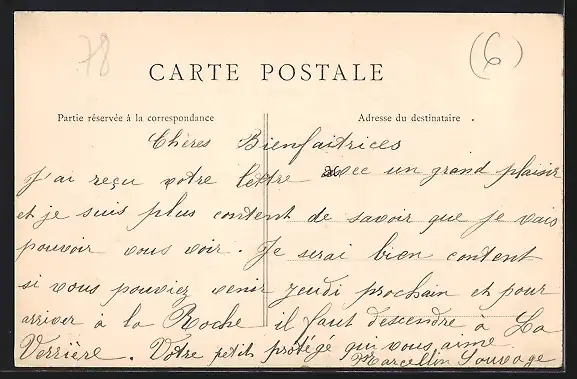 78
(6)
CARTE POSTALE
Partie réservée à la correspondance
Adresse du destinataire.
Chères Bienfaitrices
J'ai reçu votre lettre avec un grand plaisir
et je suis plus content de savoir que je vais
pouvoir vous voir. Je serai bien content
si vous pouviez venir jeudi prochain et pour
arriver à la Roche il faut descendre à La
Verrière. Votre petit protégé qui vous aime
Marcellin Souvage